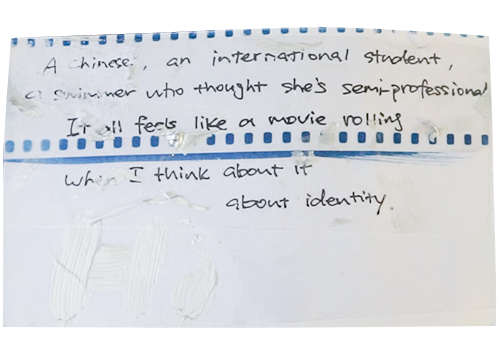 A Chinese, an international student,
a swimmer who thought she's semi-professional
It all feels like a movie rolling
when I think about it
about identity.
Hi